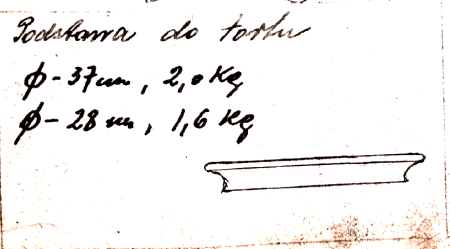 Podstawa do tortu
ϕ - 37 cm, 2,0 Kg
ϕ - 28 cm, 1,6 Kg